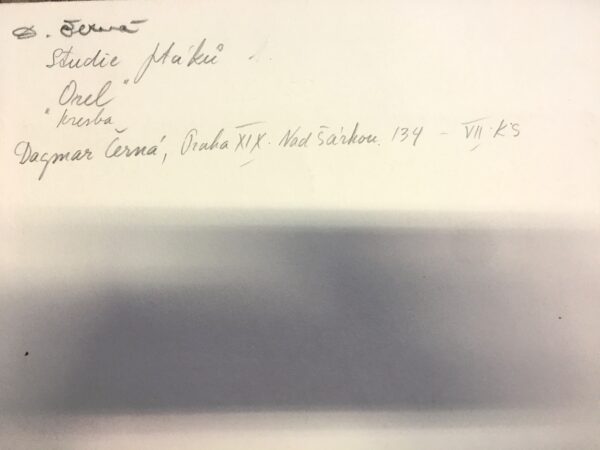 D. Černá
Studie ptáků
"Orel"
kresba
Dagmar Černá, Praha XIX. Nad Šárkou. 134 – VII. KS